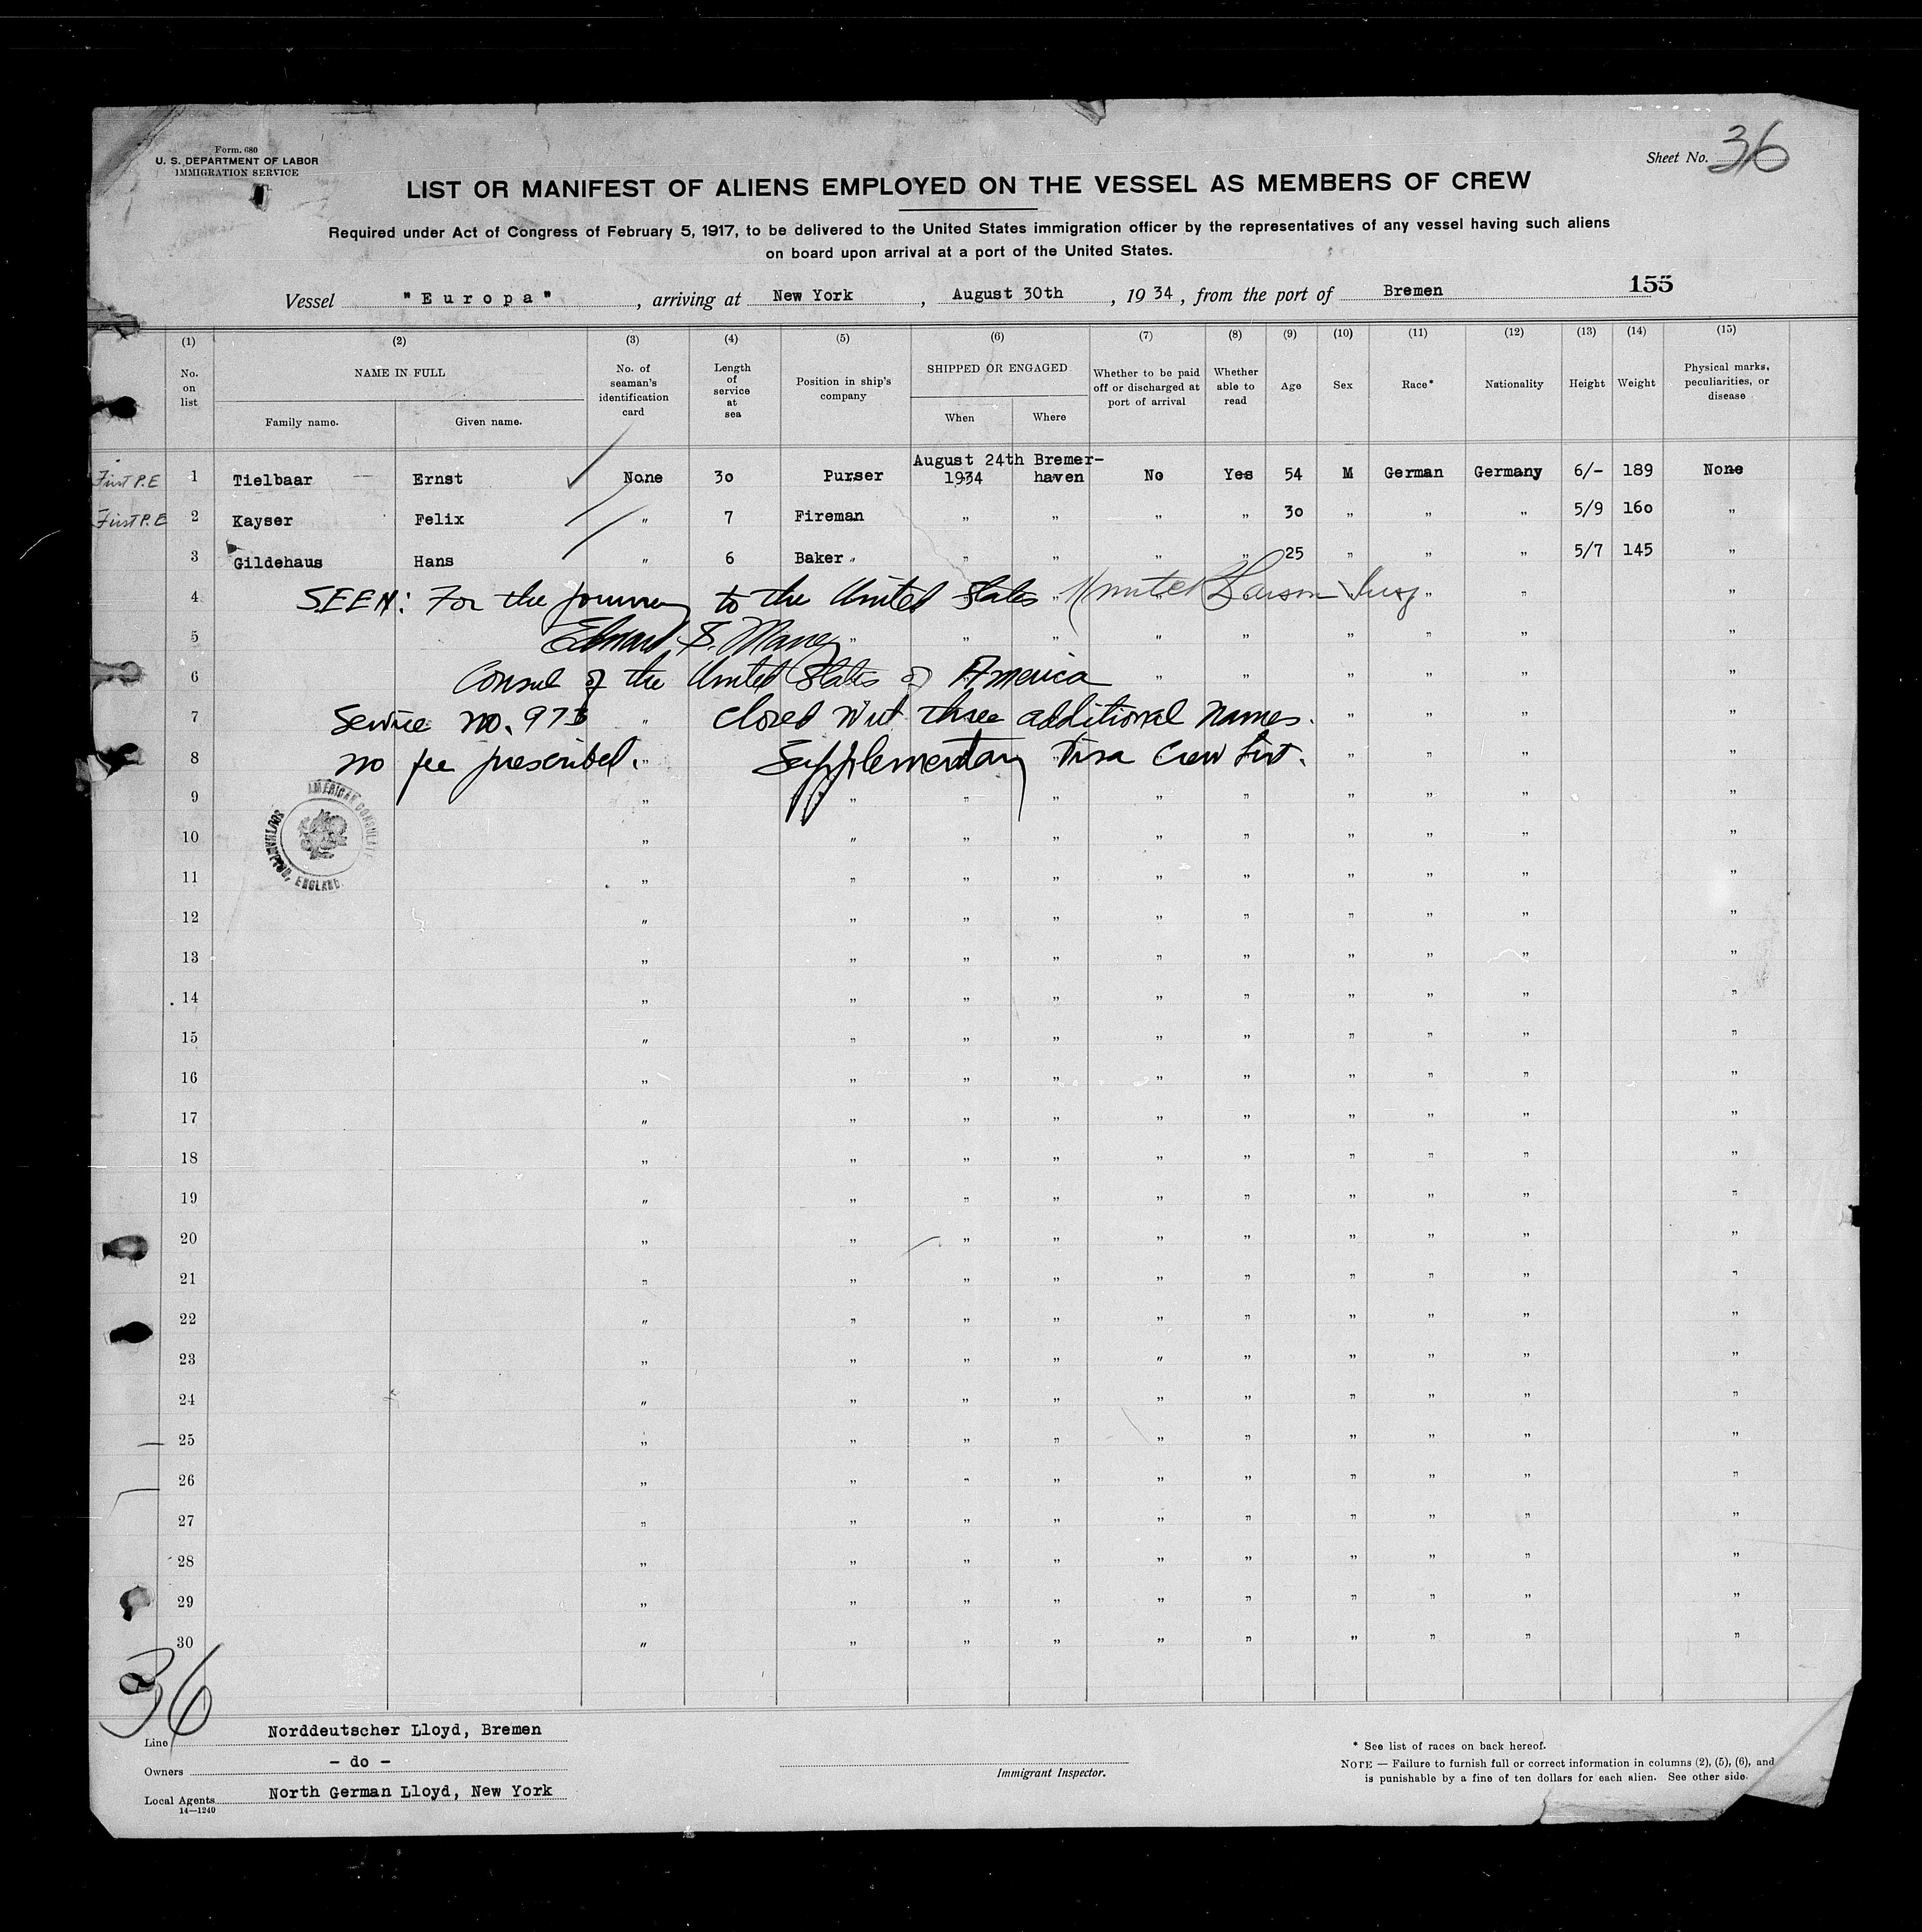 Form. 680
U. S. DEPARTMENT OF LABOR
IMMIGRATION SERVICE
Sheet No. 36
LIST OR MANIFEST OF ALIENS EMPLOYED ON THE VESSEL AS MEMBERS OF CREW
Required under Act of Congress of February 5, 1917, to be delivered to the United States immigration officer by the representatives of any vessel having such aliens
on board upon arrival at a port of the United States.
Vessel "Europa", arriving at New York, August 30th, 1934, from the port of Bremen 155
(1) (2) (3) (4) (5) (6) (7) (8) (9) (10) (11) (12) (13) (14) (15)
No. on list
NAME IN FULL
Family name. Given name.
No. of seaman's identification card
Length of service at sea
Position in ship's company
SHIPPED OR ENGAGED
When Where
Whether to be paid off or discharged at port of arrival
Whether able to read
Age
Sex
Race*
Nationality
Height
Weight
Physical marks, peculiarities, or disease
First P.E 1 Tielbaar Ernst None 30 Purser August 24th 1934 Bremerhaven No Yes 54 M German Germany 6/- 189 None
First P.E 2 Kayser Felix " 7 Fireman " " " " 30 " " " 5/9 160 "
3 Gildehaus Hans " 6 Baker " " " " 25 " " " 5/7 145 "
4 SEEN: For the journey to the United States
5 Edward S. Maney
6 Consul of the United States of America
7 Service no. 973 Closed with three additional names.
8 no fee prescribed. Supplementary Visa Crew List.
9
AMERICAN CONSULATE
SOUTHAMPTON, ENGLAND.
10
11
12
13
14
15
16
17
18
19
20
21
22
23
24
25
26
27
28
29
30
36
Line Norddeutscher Lloyd, Bremen
Owners - do -
Local Agents North German Lloyd, New York
14—1240
Immigrant Inspector.
* See list of races on back hereof.
NOTE — Failure to furnish full or correct information in columns (2), (5), (6), and
is punishable by a fine of ten dollars for each alien. See other side.